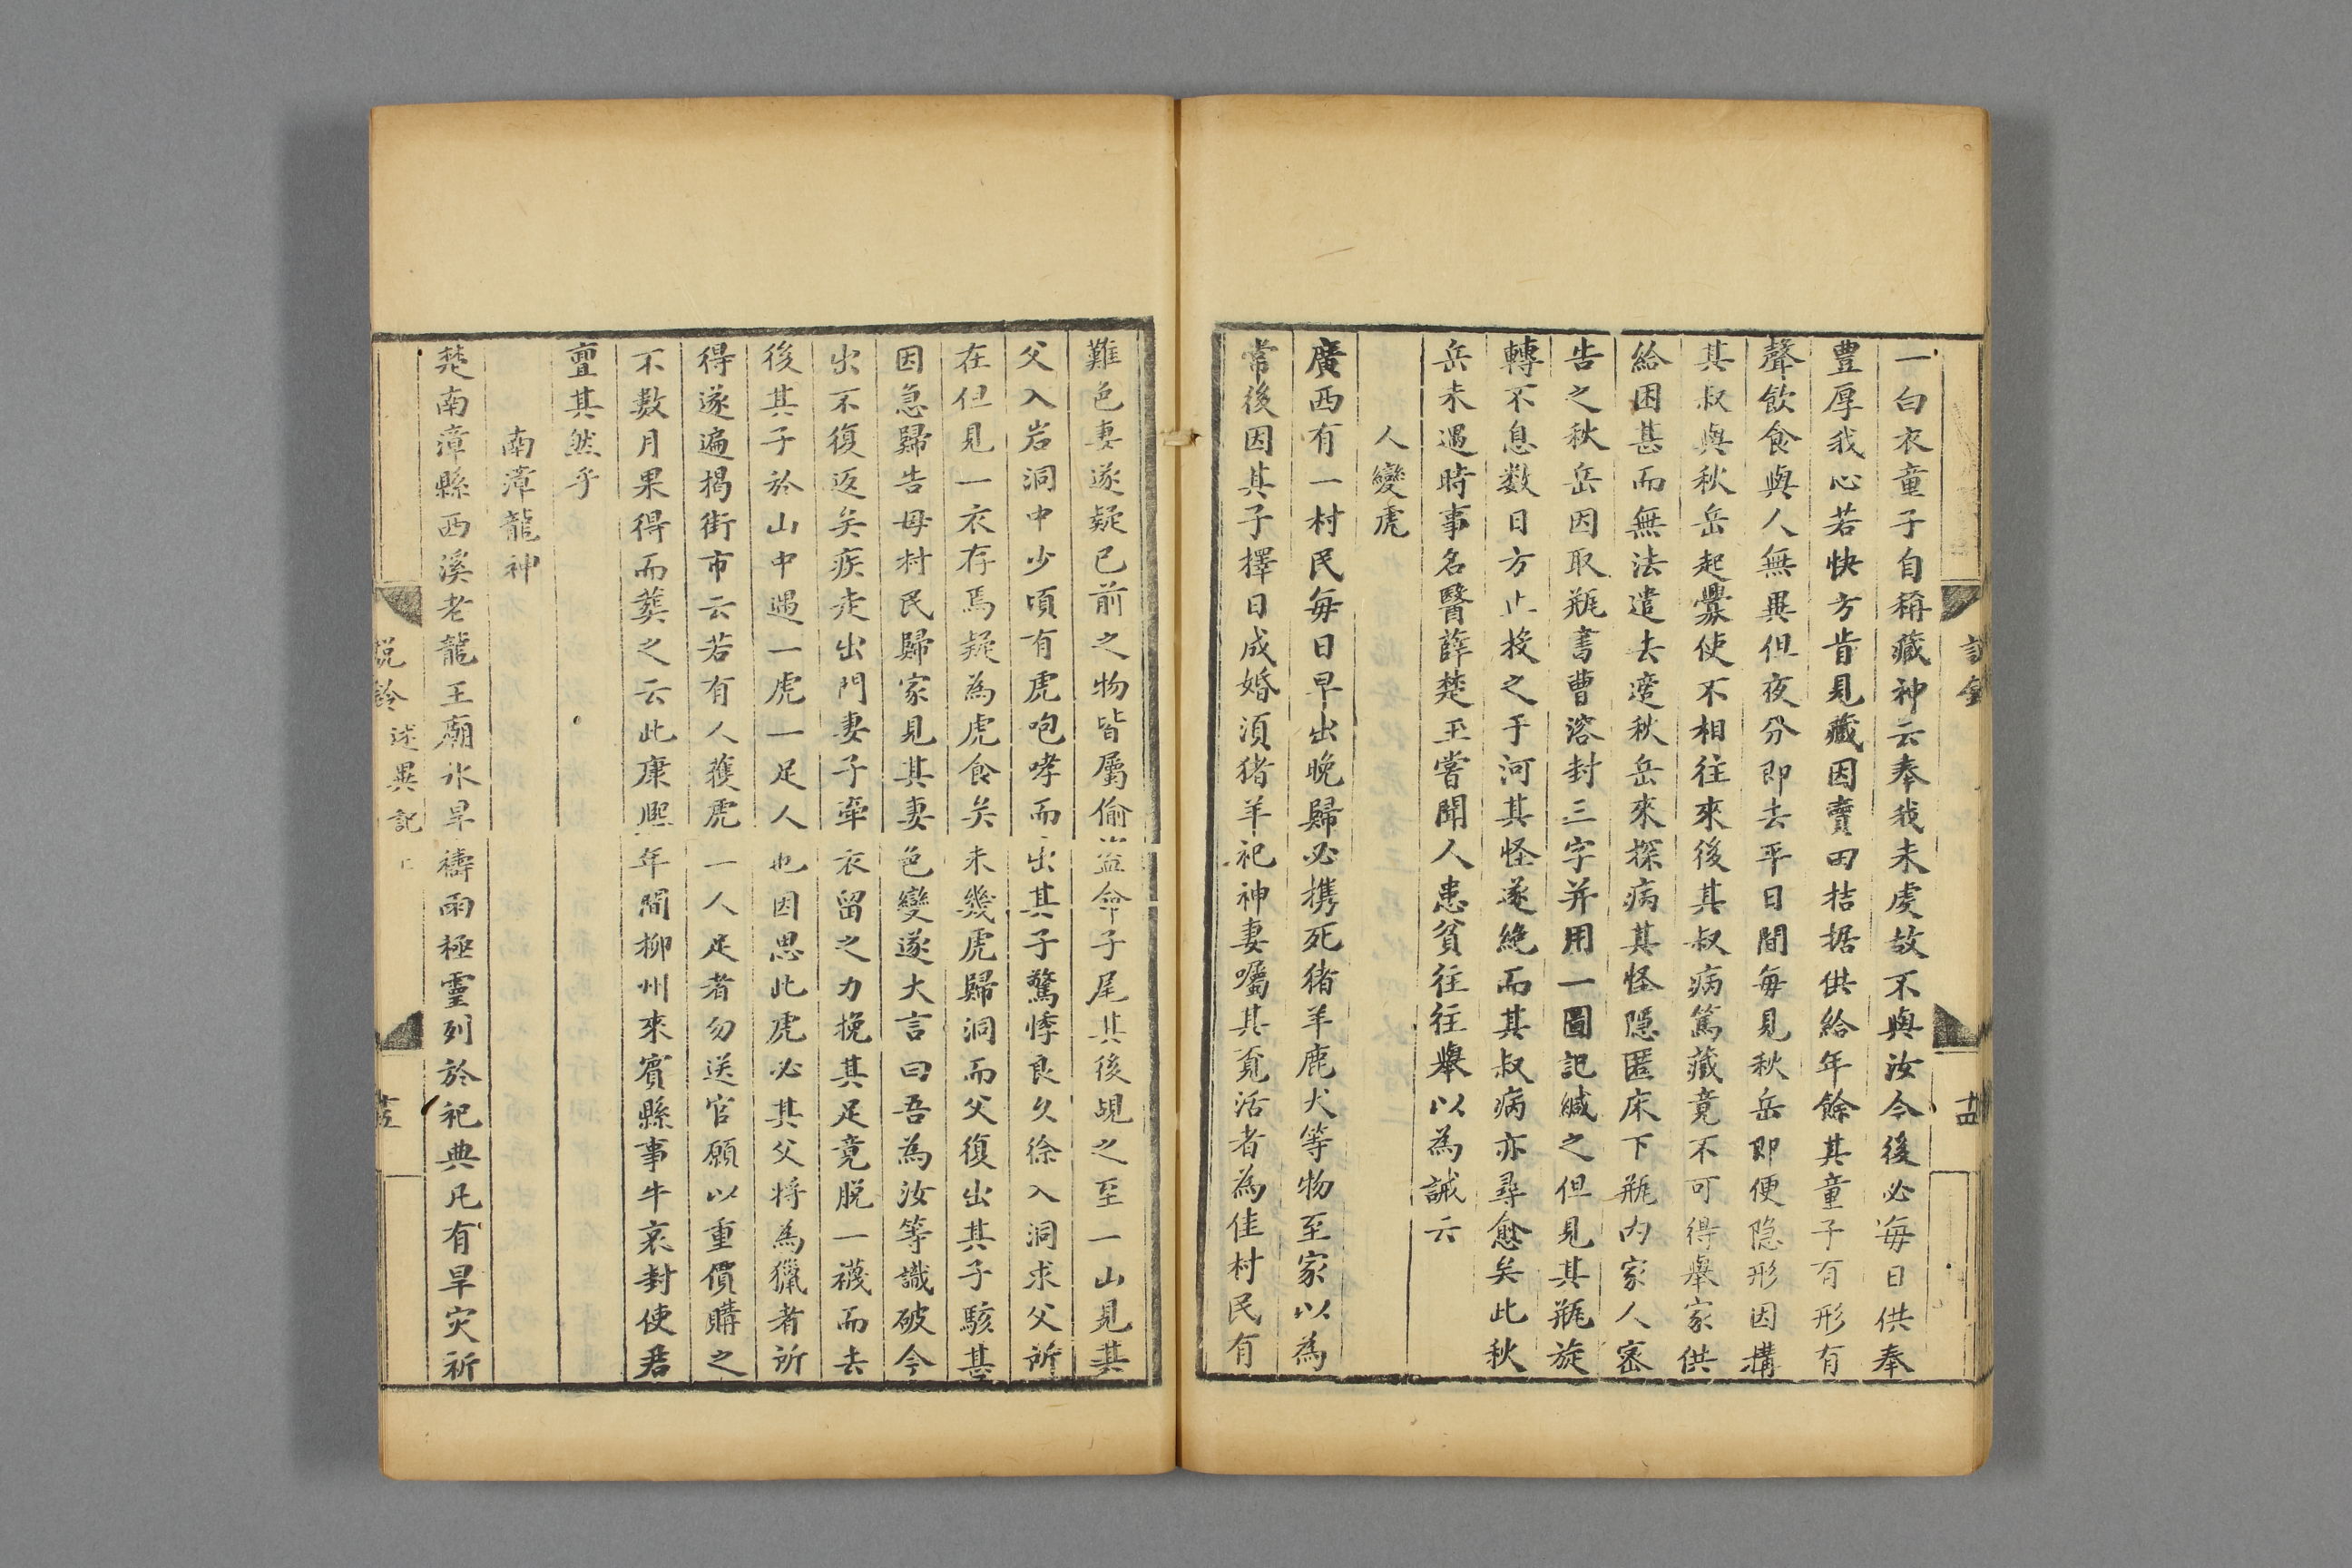 一白衣童子自稱藏神云奉我未虔故不與汝今後必每日供奉
豊厚我心若快方肯見藏因賣田拮据供給年餘其童子有形有
聲飲食與人無異但夜分即去平日間每見秋岳即便隐形因搆
其叔與秋岳起釁使不相往來後其叔病篤藏竟不可得舉家供
給困甚而無法遣去適秋岳來探病其怪隱匿床下瓶内家人密
告之秋岳因取瓶書曹溶封三字并用一圖記緘之但見其瓶旋
轉不息数日方止投之于河其怪遂絶而其叔病亦尋愈矣此秋
岳未遇時事名醫薛楚玉嘗聞人患貧往往舉以為誡云
人變虎
廣西有一村民每日早出晚歸必携死猪羊鹿犬等物至家以為
常後因其子擇日成婚須猪羊祀神妻囑其覔活者為佳村民有
難色妻遂疑已前之物皆屬偷盗命子尾其後覘之至一山見其
父入岩洞中少頃有虎咆哮而出其子驚悸良久徐入洞求父所
在但見一衣存焉疑為虎食矣未幾虎歸洞而父復出其子駭甚
因急歸告母村民歸家見其妻色變遂大言曰吾為汝等識破今
出不復返矣疾走出門妻子牽衣留之力挽其足竟脱一襪而去
後其子於山中遇一虎一足人也因思此虎必其父将為獵者所
得遂遍揭街市云若有人獲虎一人足者勿送官願以重價購之
不數月果得而葬之云此康熙年間柳州來賓縣事牛哀封使君
亶其然乎
南漳龍神
楚南漳縣西溪老龍王廟水旱禱雨極靈列於祀典凡有旱灾祈
説鈴 述異記 上 十五
十四